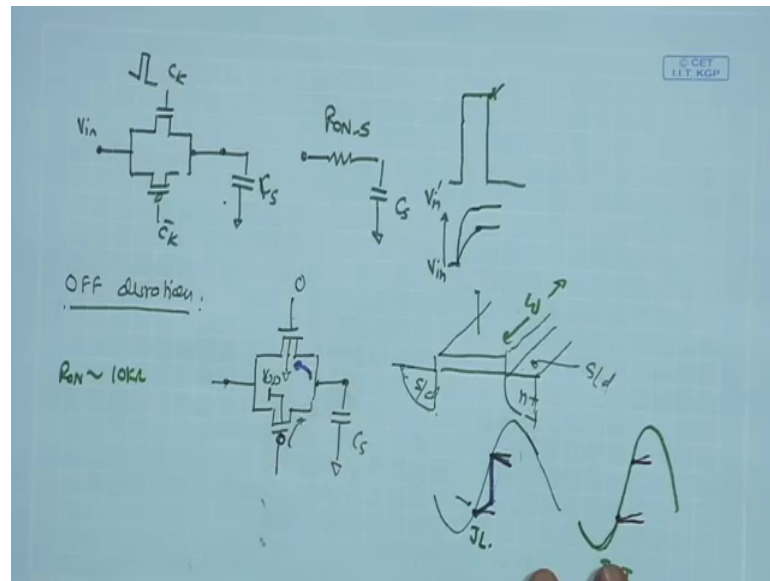 © CET
I.I.T. KGP
CK
Vin
CS
CK
RON-S
CS
Vin'
Vin
OFF duration:
RON ~ 10KΩ
0
VDD
CS
W
S/d
S/d
n+